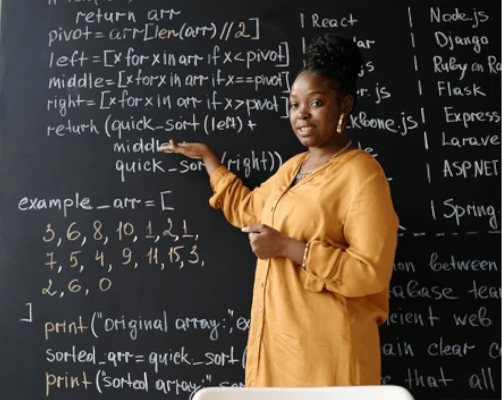 return arr
pivot = arr[len(arr) // 2]
left = [x for x in arr if x < pivot]
middle = [x for x in arr if x == pivot]
right = [x for x in arr if x > pivot]
return (quick_sort (left) +
middle
quick_sort (right))
example_arr = [
3, 6, 8, 10, 1, 2, 1,
7, 5, 4, 9, 11, 15, 3,
2, 6, 0
]
print ("Original array:", ex
sorted_arr = quick_sort (
print ("sorted array:"
| React
ar
r.js
kbone.js
| Node.js
| Django
| Ruby on Ra
| Flask
| Express
| Larave
| ASP.NET
| Spring
on between
abase tea
cient web
ain clear c
e that all